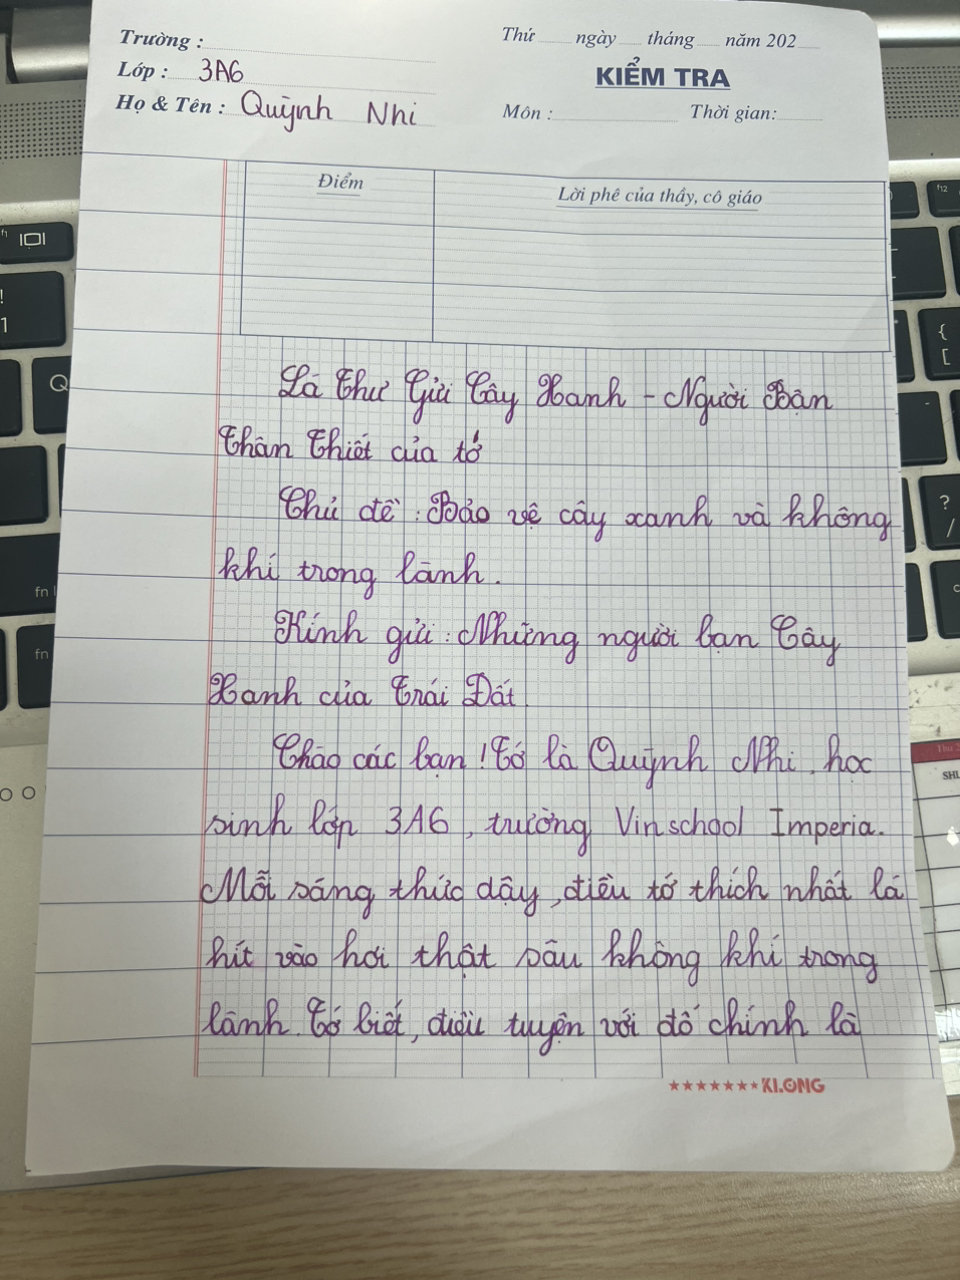 Trường :
Thứ ngày tháng năm 202
Lớp : 3A6
KIỂM TRA
Họ & Tên : Quỳnh Nhi
Môn : Thời gian:
Điểm
Lời phê của thầy, cô giáo
Lá Thư Gửi Cây Xanh - Người Bạn
Thân Thiết của tớ
Chủ đề : Bảo vệ cây xanh và không
khí trong lành.
Kính gửi : Những người bạn Cây
Xanh của Trái Đất.
Chào các bạn ! Tớ là Quỳnh Nhi, học
sinh lớp 3A6, trường Vinschool Imperia.
Mỗi sáng thức dậy, điều tớ thích nhất là
hít vào hơi thật sâu không khí trong
lành. Tớ biết, điều tuyện vời đó chính là
★★★★★★★KLONG
Q
fn
fn
f12
{
[
?
/
!
1
f1
Thu
SHL